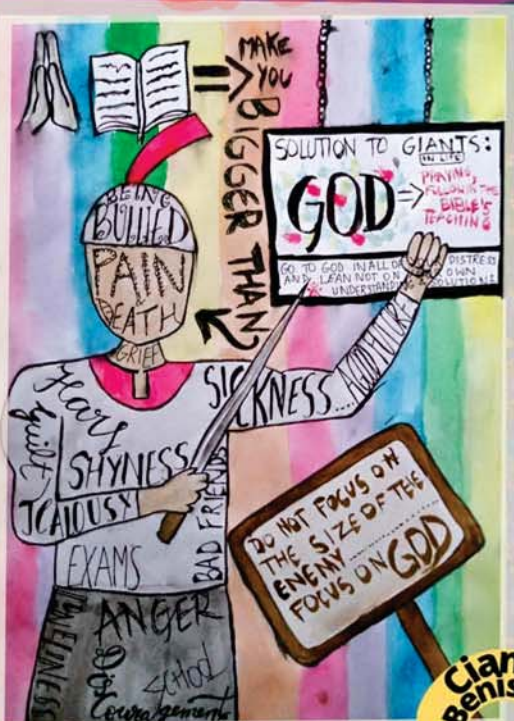 MAKE
YOU
BIGGER THAN
SOLUTION TO GIANTS:
IN LIFE
GOD
PRAYING,
BIBLE'S
TEACHING
GO TO GOD IN ALL OF DISTRESS
AND LEAN NOT ON OWN
UNDERSTANDING SOLUTIONS
BEING
BULLIED
PAIN
DEATH
GRIEF
SICKNESS
Hurt
Guilt
SHYNESS
JEALOUSY
BAD FRIENDS
EXAMS
LONELINESS
ANGER
SCHOOL
DO NOT FOCUS ON
THE SIZE OF THE
ENEMY..............
FOCUS ON GOD
Cian
Benis